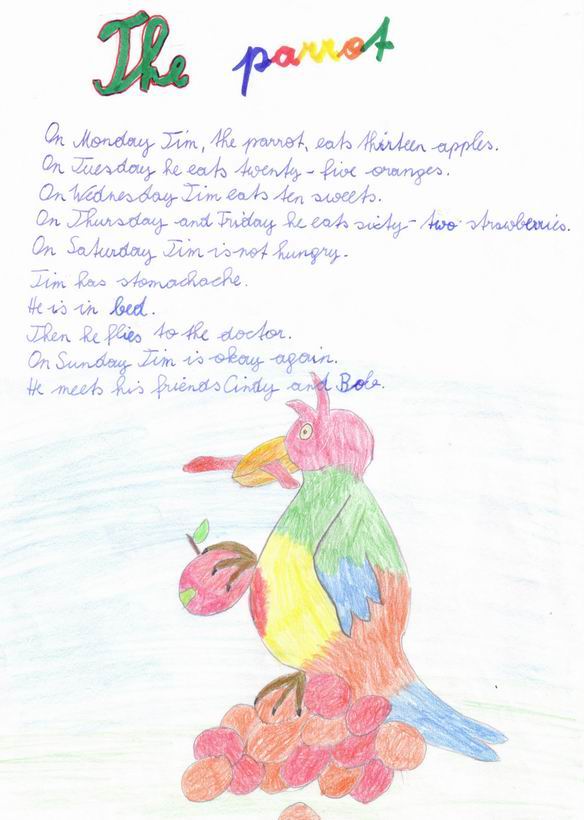 The parrot
On Monday Tim, the parrot, eats thirteen apples.
On Tuesday he eats twenty-five oranges.
On Wednesday Tim eats ten sweets.
On Thursday and Friday he eats sixty-two strawberries.
On Saturday Tim is not hungry.
Tim has stomachache.
He is in bed.
Then he flies to the doctor.
On Sunday Tim is okay again.
He meets his friends Cindy and Bob.